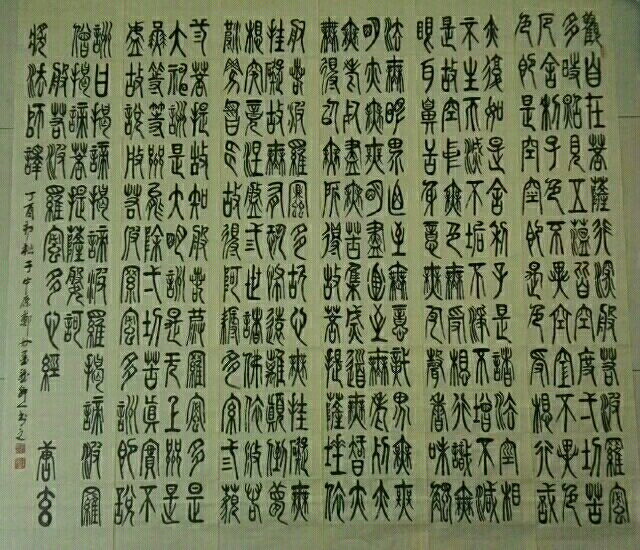 觀自在菩薩行深般若波羅蜜
多時照見五蘊皆空度一切苦
厄舍利子色不異空空不異色
色即是空空即是色受想行識
亦復如是舍利子是諸法空相
不生不滅不垢不淨不增不減
是故空中無色無受想行識無
眼耳鼻舌身意無色聲香味觸
法無眼界乃至無意識界無無
明亦無無明盡乃至無老死亦
無老死盡無苦集滅道無智亦
無得以無所得故菩提薩埵依
般若波羅蜜多故心無挂礙無
挂礙故無有恐怖遠離顛倒夢
想究竟涅盤三世諸佛依般若
波羅蜜多故得阿耨多羅三藐
三菩提故知般若波羅蜜多是
大神咒是大明咒是无上咒是
无等等咒能除一切苦真實不
虛故說般若波羅蜜多咒即說
咒曰揭諦揭諦波羅揭諦波羅
僧揭諦菩提薩婆訶
般若波羅蜜多心經 唐玄
奘法師譯
丁酉初秋于中原鄭州